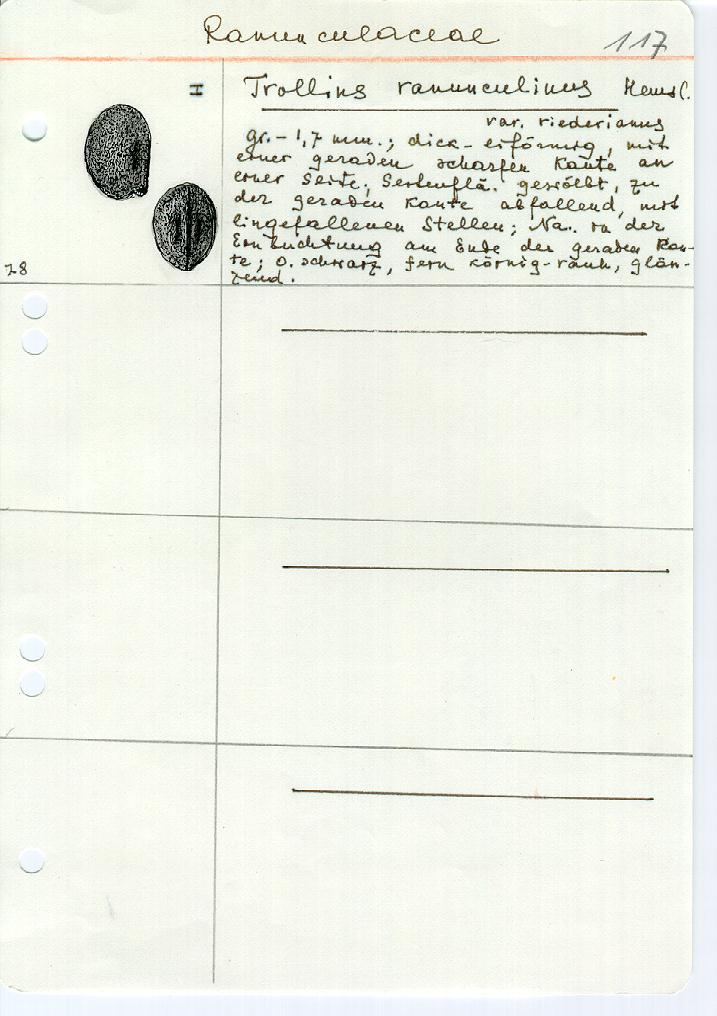 Ranunculaceae
117
Trollius ranunculinus Hemsl.
var. riederianus
gr. - 1,7 mm.; dick-eiförmig, mit
einer geraden scharfen Kante an
einer Seite; Seitenflä. gewölbt, zu
der geraden Kante abfallend, mit
eingefallenen Stellen; Na. in der
Einbuchtung am Ende der geraden Kan-
te; O. schwarz, fein körnig-rauh, glän-
zend.
28